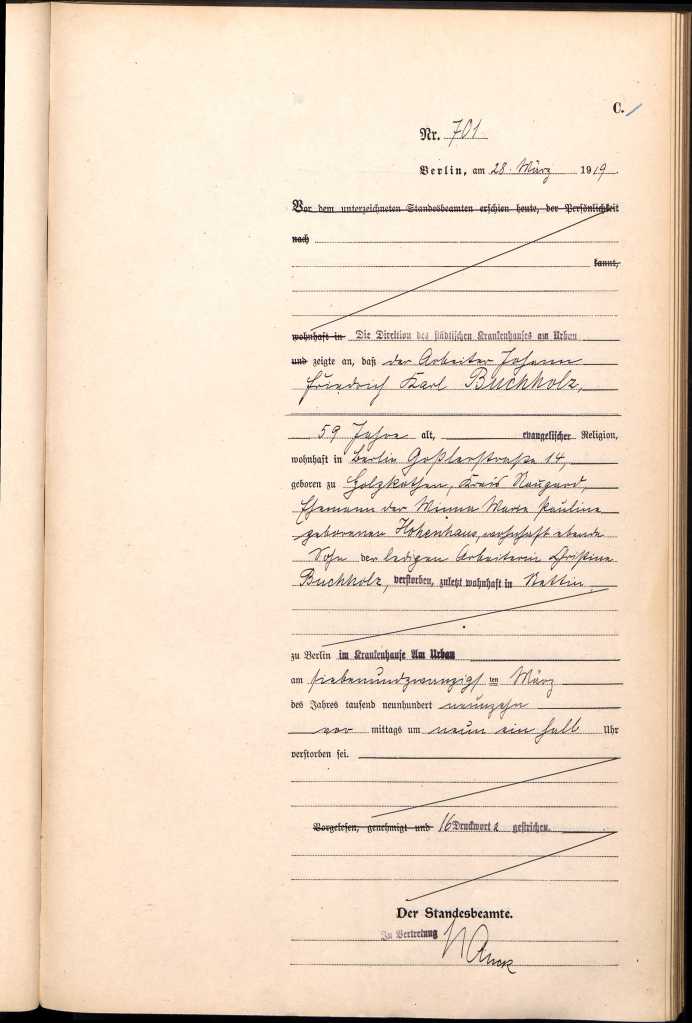 C.
Nr. 701
Berlin, am 28. März 1919.
Vor dem unterzeichneten Standesbeamten erschien heute, der Persönlichkeit
nach
kannt,
wohnhaft in Die Direktion des städtischen Krankenhauses am Urban
und zeigte an, daß der Arbeiter Johann
Friedrich Karl Buchholz,
59 Jahre alt, evangelischer Religion,
wohnhaft in Berlin Goßlerstraße 14,
geboren zu Holzkathen, Kreis Naugard,
Ehemann der Minna Marie Pauline
geborenen Hohenhaus, wohnhaft ebenda
Sohn der ledigen Arbeiterin Christine
Buchholz, verstorben, zuletzt wohnhaft in
zu Berlin im Krankenhause Am Urban
am siebenundzwanzigsten März
des Jahres tausend neunhundert neunzehn
vor mittags um neun ein halb Uhr
verstorben sei.
Vorgelesen, genehmigt und 16 Druckworte gestrichen.
Der Standesbeamte.
In Vertretung